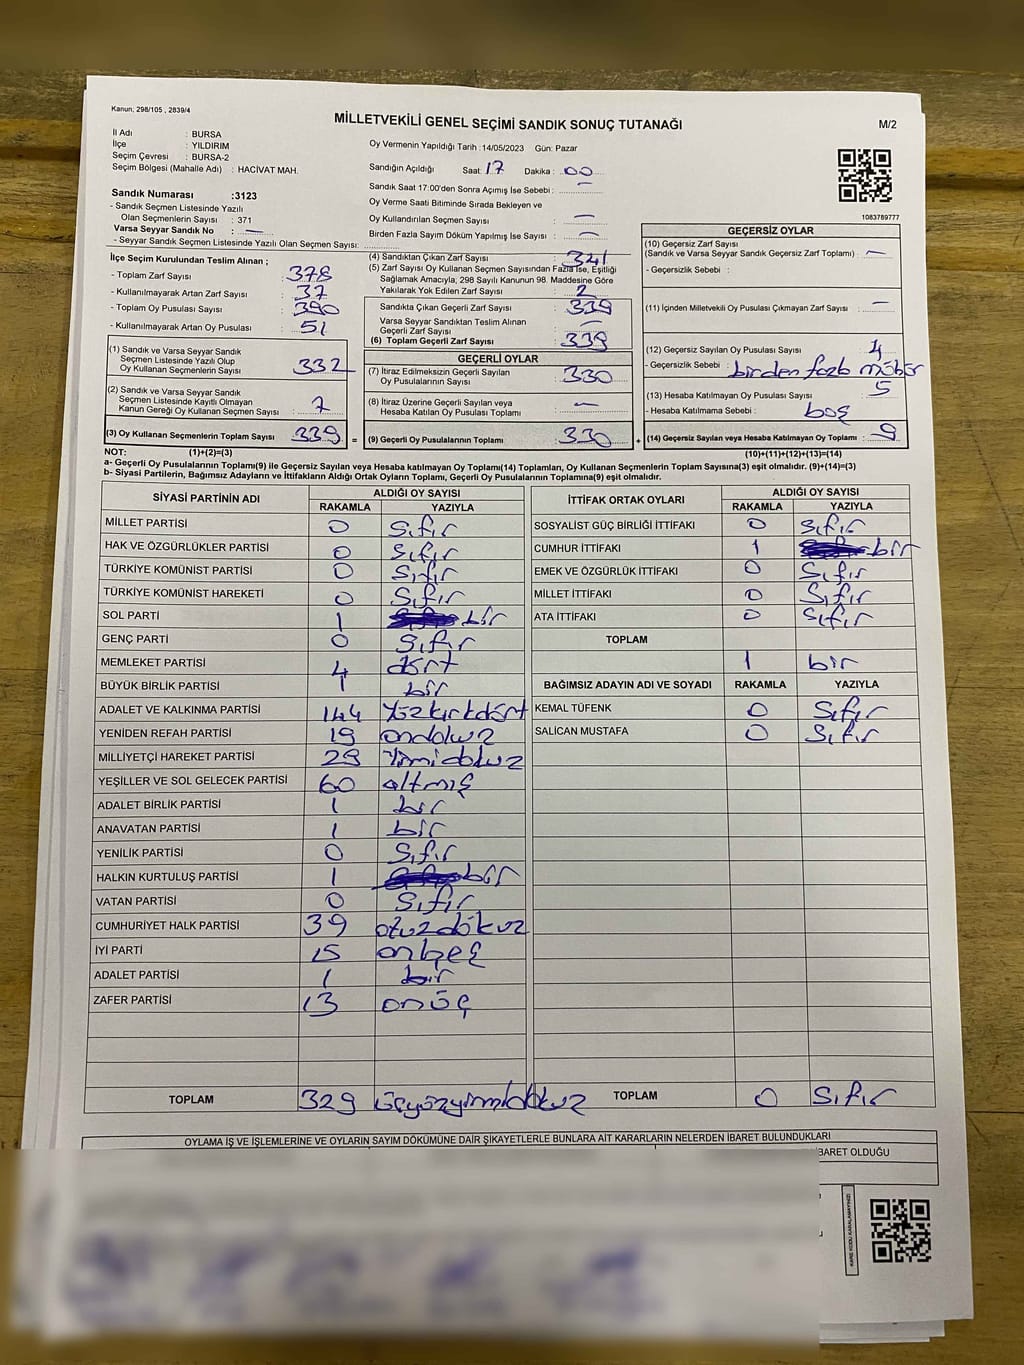 Kanun; 298/105 , 2839/4
MİLLETVEKİLİ GENEL SEÇİMİ SANDIK SONUÇ TUTANAĞI
M/2
İl Adı : BURSA
İlçe : YILDIRIM
Seçim Çevresi : BURSA-2
Seçim Bölgesi (Mahalle Adı) : HACİVAT MAH.
Sandık Numarası :3123
- Sandık Seçmen Listesinde Yazılı
Olan Seçmenlerin Sayısı : 371
Varsa Seyyar Sandık No : —
- Seyyar Sandık Seçmen Listesinde Yazılı Olan Seçmen Sayısı:
Oy Vermenin Yapıldığı Tarih :14/05/2023 Gün: Pazar
Sandığın Açıldığı Saat: 17 Dakika : 00
Sandık Saat 17:00'den Sonra Açımış İse Sebebi : —
Oy Verme Saati Bitiminde Sırada Bekleyen ve
Oy Kullandırılan Seçmen Sayısı : —
Birden Fazla Sayım Döküm Yapılmış İse Sayısı : —
1083789777
İlçe Seçim Kurulundan Teslim Alınan ;
- Toplam Zarf Sayısı : 378
- Kullanılmayarak Artan Zarf Sayısı : 37
- Toplam Oy Pusulası Sayısı : 390
- Kullanılmayarak Artan Oy Pusulası : 51
(1) Sandık ve Varsa Seyyar Sandık
Seçmen Listesinde Yazılı Olup
Oy Kullanan Seçmenlerin Sayısı : 332
(2) Sandık ve Varsa Seyyar Sandık
Seçmen Listesinde Kayıtlı Olmayan
Kanun Gereği Oy Kullanan Seçmen Sayısı : 7
(3) Oy Kullanan Seçmenlerin Toplam Sayısı : 339 =
(4) Sandıktan Çıkan Zarf Sayısı : 341
(5) Zarf Sayısı Oy Kullanan Seçmen Sayısından Fazla İse, Eşitliği
Sağlamak Amacıyla; 298 Sayılı Kanunun 98. Maddesine Göre
Yakılarak Yok Edilen Zarf Sayısı : 2
Sandıkta Çıkan Geçerli Zarf Sayısı : 339
Varsa Seyyar Sandıktan Teslim Alınan
Geçerli Zarf Sayısı : —
(6) Toplam Geçerli Zarf Sayısı : 339
GEÇERLİ OYLAR
(7) İtiraz Edilmeksizin Geçerli Sayılan
Oy Pusulalarının Sayısı : 330
(8) İtiraz Üzerine Geçerli Sayılan veya
Hesaba Katılan Oy Pusulası Toplamı : —
(9) Geçerli Oy Pusulalarının Toplamı : 330 +
GEÇERSİZ OYLAR
(10) Geçersiz Zarf Sayısı
(Sandık ve Varsa Seyyar Sandık Geçersiz Zarf Toplamı) : —
- Geçersizlik Sebebi :
(11) İçinden Milletvekili Oy Pusulası Çıkmayan Zarf Sayısı : —
(12) Geçersiz Sayılan Oy Pusulası Sayısı : 4
- Geçersizlik Sebebi : birden fazla mühür
(13) Hesaba Katılmayan Oy Pusulası Sayısı : 5
- Hesaba Katılmama Sebebi : boş
(14) Geçersiz Sayılan veya Hesaba Katılmayan Oy Toplamı : 9
NOT: (1)+(2)=(3) (10)+(11)+(12)+(13)=(14)
a- Geçerli Oy Pusulalarının Toplamı(9) ile Geçersiz Sayılan veya Hesaba katılmayan Oy Toplamı(14) Toplamları, Oy Kullanan Seçmenlerin Toplam Sayısına(3) eşit olmalıdır. (9)+(14)=(3)
b- Siyasi Partilerin, Bağımsız Adayların ve İttifakların Aldığı Ortak Oyların Toplamı, Geçerli Oy Pusulalarının Toplamına(9) eşit olmalıdır.
SİYASİ PARTİNİN ADI ALDIĞI OY SAYISI
RAKAMLA YAZIYLA
MİLLET PARTİSİ 0 sıfır
HAK VE ÖZGÜRLÜKLER PARTİSİ 0 sıfır
TÜRKİYE KOMÜNİST PARTİSİ 0 sıfır
TÜRKİYE KOMÜNİST HAREKETİ 0 sıfır
SOL PARTİ 1 bir
GENÇ PARTİ 0 sıfır
MEMLEKET PARTİSİ 4 dört
BÜYÜK BİRLİK PARTİSİ 1 bir
ADALET VE KALKINMA PARTİSİ 144 Yüzkırkdört
YENİDEN REFAH PARTİSİ 19 ondokuz
MİLLİYETÇİ HAREKET PARTİSİ 29 Yirmidokuz
YEŞİLLER VE SOL GELECEK PARTİSİ 60 altmış
ADALET BİRLİK PARTİSİ 1 bir
ANAVATAN PARTİSİ 1 bir
YENİLİK PARTİSİ 0 sıfır
HALKIN KURTULUŞ PARTİSİ 1 bir
VATAN PARTİSİ 0 sıfır
CUMHURİYET HALK PARTİSİ 39 otuzdokuz
İYİ PARTİ 15 onbeş
ADALET PARTİSİ 1 bir
ZAFER PARTİSİ 13 onüç
TOPLAM 329 üçyüzyirmidokuz
İTTİFAK ORTAK OYLARI ALDIĞI OY SAYISI
RAKAMLA YAZIYLA
SOSYALİST GÜÇ BİRLİĞİ İTTİFAKI 0 sıfır
CUMHUR İTTİFAKI 1 bir
EMEK VE ÖZGÜRLÜK İTTİFAKI 0 sıfır
MİLLET İTTİFAKI 0 sıfır
ATA İTTİFAKI 0 sıfır
TOPLAM
1 bir
BAĞIMSIZ ADAYIN ADI VE SOYADI RAKAMLA YAZIYLA
KEMAL TÜFENK 0 sıfır
SALİCAN MUSTAFA 0 sıfır
TOPLAM 0 sıfır
OYLAMA İŞ VE İŞLEMLERİNE VE OYLARIN SAYIM DÖKÜMÜNE DAİR ŞİKAYETLERLE BUNLARA AİT KARARLARIN NELERDEN İBARET BULUNDUKLARI
BARET OLDUĞU
KARE KODU KARALAMAYINIZ!